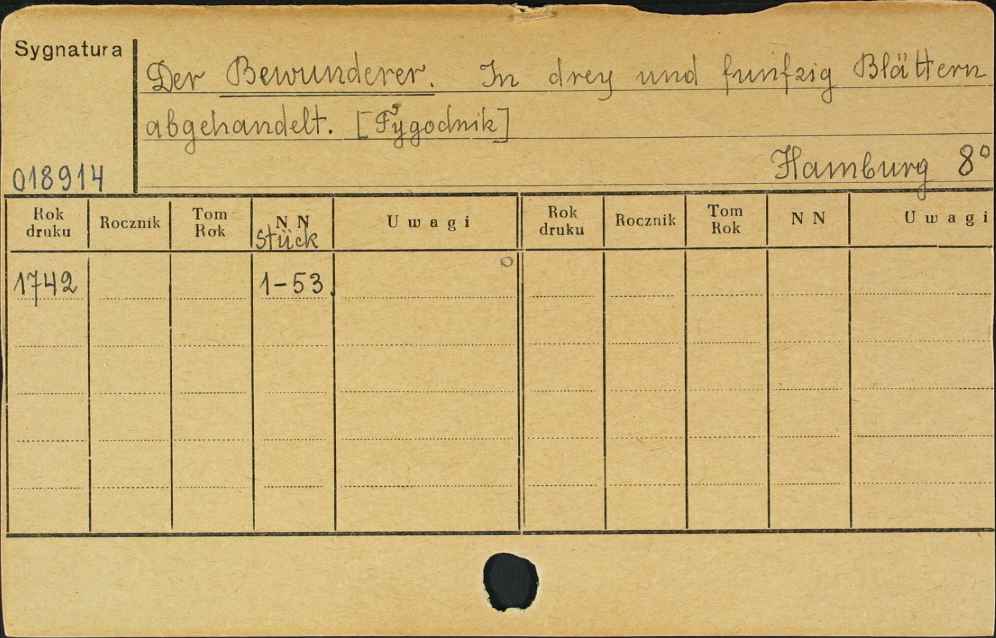 Sygnatura
Der Bewunderer. In drey und funfzig Blättern
abgehandelt. [Tygodnik]
018914
Hamburg 8°
Rok druku Rocznik Tom Rok NN Stück Uwagi Rok druku Rocznik Tom Rok NN Uwagi
1742 1-53.